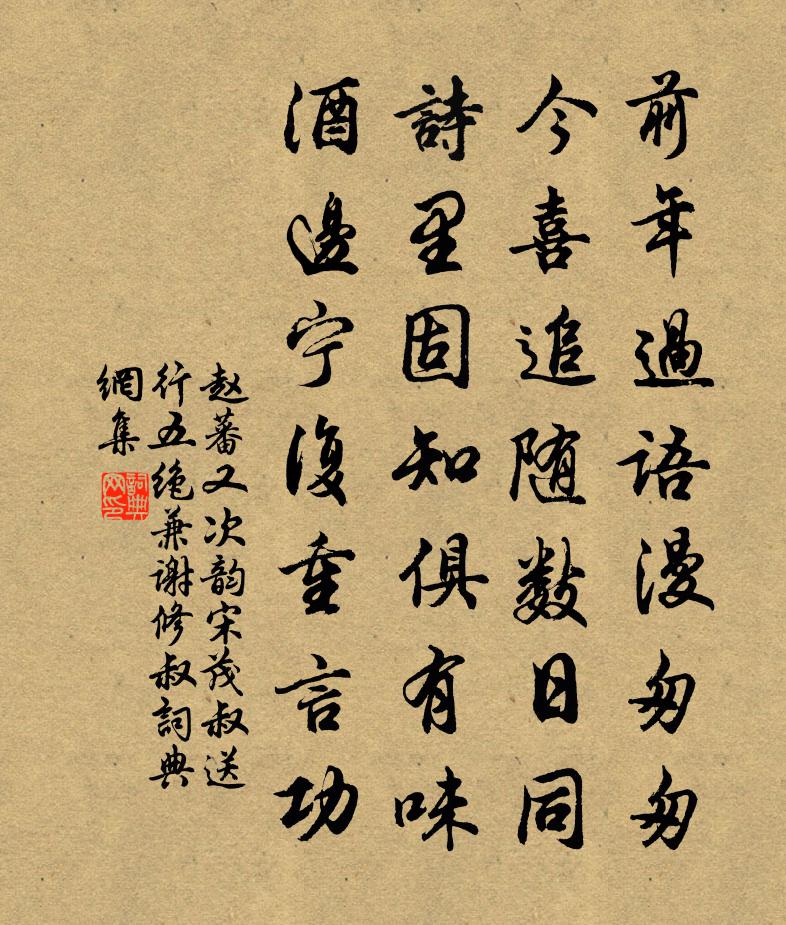 前年過語漫匆匆
今喜追随数日同
詩里固知俱有味
酒邊宁復重言功
赵蕃又次韵宋茂叔送
行五绝兼谢修叔詞典
網集
詞典
网印